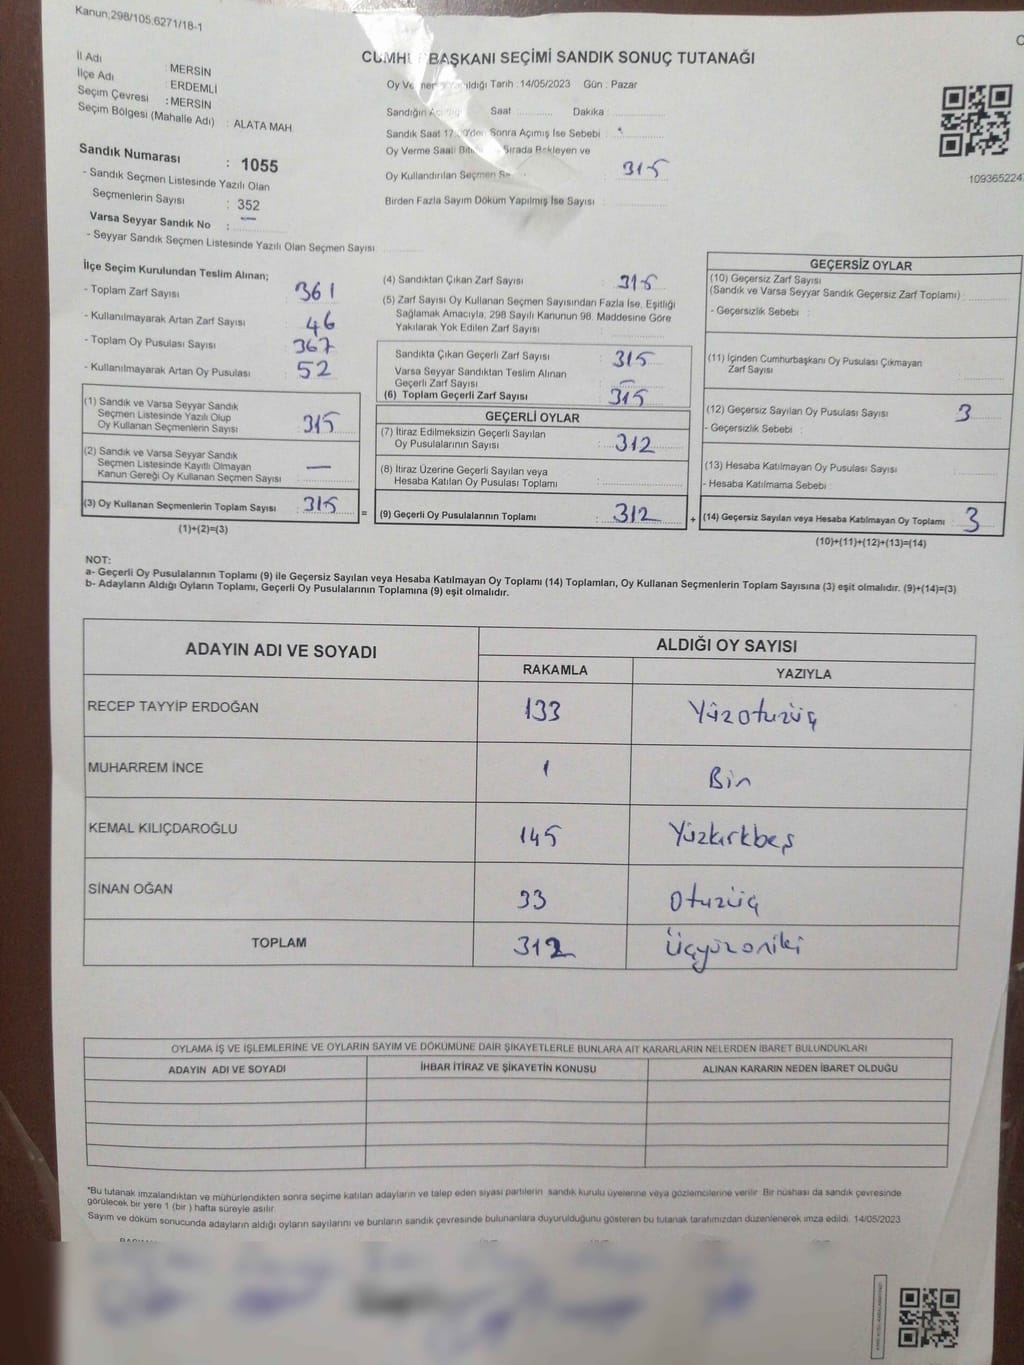 Kanun;298/105;6271/18-1
CUMHU BAŞKANI SEÇİMİ SANDIK SONUÇ TUTANAĞI
İl Adı : MERSİN
İlçe Adı : ERDEMLİ
Seçim Çevresi : MERSİN
Seçim Bölgesi (Mahalle Adı) : ALATA MAH
Oy Tarih : 14/05/2023 Gün : Pazar
Sandığın Saat Dakika :
Sandık Saat Sonra Açımış İse Sebebi :
Oy Verme Saati Sırada Bekleyen ve
Oy Kullandırılan Seçmen 315
Birden Fazla Sayım Döküm Yapılmış İse Sayısı :
109365224
Sandık Numarası : 1055
- Sandık Seçmen Listesinde Yazılı Olan
Seçmenlerin Sayısı : 352
Varsa Seyyar Sandık No : —
- Seyyar Sandık Seçmen Listesinde Yazılı Olan Seçmen Sayısı
İlçe Seçim Kurulundan Teslim Alınan;
- Toplam Zarf Sayısı : 361
- Kullanılmayarak Artan Zarf Sayısı : 46
- Toplam Oy Pusulası Sayısı : 367
- Kullanılmayarak Artan Oy Pusulası : 52
(1) Sandık ve Varsa Seyyar Sandık
Seçmen Listesinde Yazılı Olup
Oy Kullanan Seçmenlerin Sayısı : 315
(2) Sandık ve Varsa Seyyar Sandık
Seçmen Listesinde Kayıtlı Olmayan
Kanun Gereği Oy Kullanan Seçmen Sayısı : —
(3) Oy Kullanan Seçmenlerin Toplam Sayısı : 315
(1)+(2)=(3)
=
(4) Sandıktan Çıkan Zarf Sayısı : 315
(5) Zarf Sayısı Oy Kullanan Seçmen Sayısından Fazla İse, Eşitliği
Sağlamak Amacıyla, 298 Sayılı Kanunun 98. Maddesine Göre
Yakılarak Yok Edilen Zarf Sayısı :
Sandıkta Çıkan Geçerli Zarf Sayısı : 315
Varsa Seyyar Sandıktan Teslim Alınan
Geçerli Zarf Sayısı : —
(6) Toplam Geçerli Zarf Sayısı : 315
GEÇERLİ OYLAR
(7) İtiraz Edilmeksizin Geçerli Sayılan
Oy Pusulalarının Sayısı : 312
(8) İtiraz Üzerine Geçerli Sayılan veya
Hesaba Katılan Oy Pusulası Toplamı :
(9) Geçerli Oy Pusulalarının Toplamı : 312
+
GEÇERSİZ OYLAR
(10) Geçersiz Zarf Sayısı
(Sandık ve Varsa Seyyar Sandık Geçersiz Zarf Toplamı) :
- Geçersizlik Sebebi :
(11) İçinden Cumhurbaşkanı Oy Pusulası Çıkmayan
Zarf Sayısı :
(12) Geçersiz Sayılan Oy Pusulası Sayısı : 3
- Geçersizlik Sebebi :
(13) Hesaba Katılmayan Oy Pusulası Sayısı :
- Hesaba Katılmama Sebebi :
(14) Geçersiz Sayılan veya Hesaba Katılmayan Oy Toplamı : 3
(10)+(11)+(12)+(13)=(14)
NOT:
a- Geçerli Oy Pusulalarının Toplamı (9) ile Geçersiz Sayılan veya Hesaba Katılmayan Oy Toplamı (14) Toplamları, Oy Kullanan Seçmenlerin Toplam Sayısına (3) eşit olmalıdır. (9)+(14)=(3)
b- Adayların Aldığı Oyların Toplamı, Geçerli Oy Pusulalarının Toplamına (9) eşit olmalıdır.
ADAYIN ADI VE SOYADI ALDIĞI OY SAYISI
RAKAMLA YAZIYLA
RECEP TAYYİP ERDOĞAN 133 Yüzotuzüç
MUHARREM İNCE 1 Bir
KEMAL KILIÇDAROĞLU 145 Yüzkırkbeş
SİNAN OĞAN 33 Otuzüç
TOPLAM 312 Üçyüzoniki
OYLAMA İŞ VE İŞLEMLERİNE VE OYLARIN SAYIM VE DÖKÜMÜNE DAİR ŞİKAYETLERLE BUNLARA AİT KARARLARIN NELERDEN İBARET BULUNDUKLARI
ADAYIN ADI VE SOYADI İHBAR İTİRAZ VE ŞİKAYETİN KONUSU ALINAN KARARIN NEDEN İBARET OLDUĞU
*Bu tutanak imzalandıktan ve mühürlendikten sonra seçime katılan adayların ve talep eden siyasi partilerin sandık kurulu üyelerine veya gözlemcilerine verilir. Bir nüshası da sandık çevresinde
görülecek bir yere 1 (bir ) hafta süreyle asılır.
Sayım ve döküm sonucunda adayların aldığı oyların sayılarını ve bunların sandık çevresinde bulunanlara duyurulduğunu gösteren bu tutanak tarafımızdan düzenlenerek imza edildi. 14/05/2023